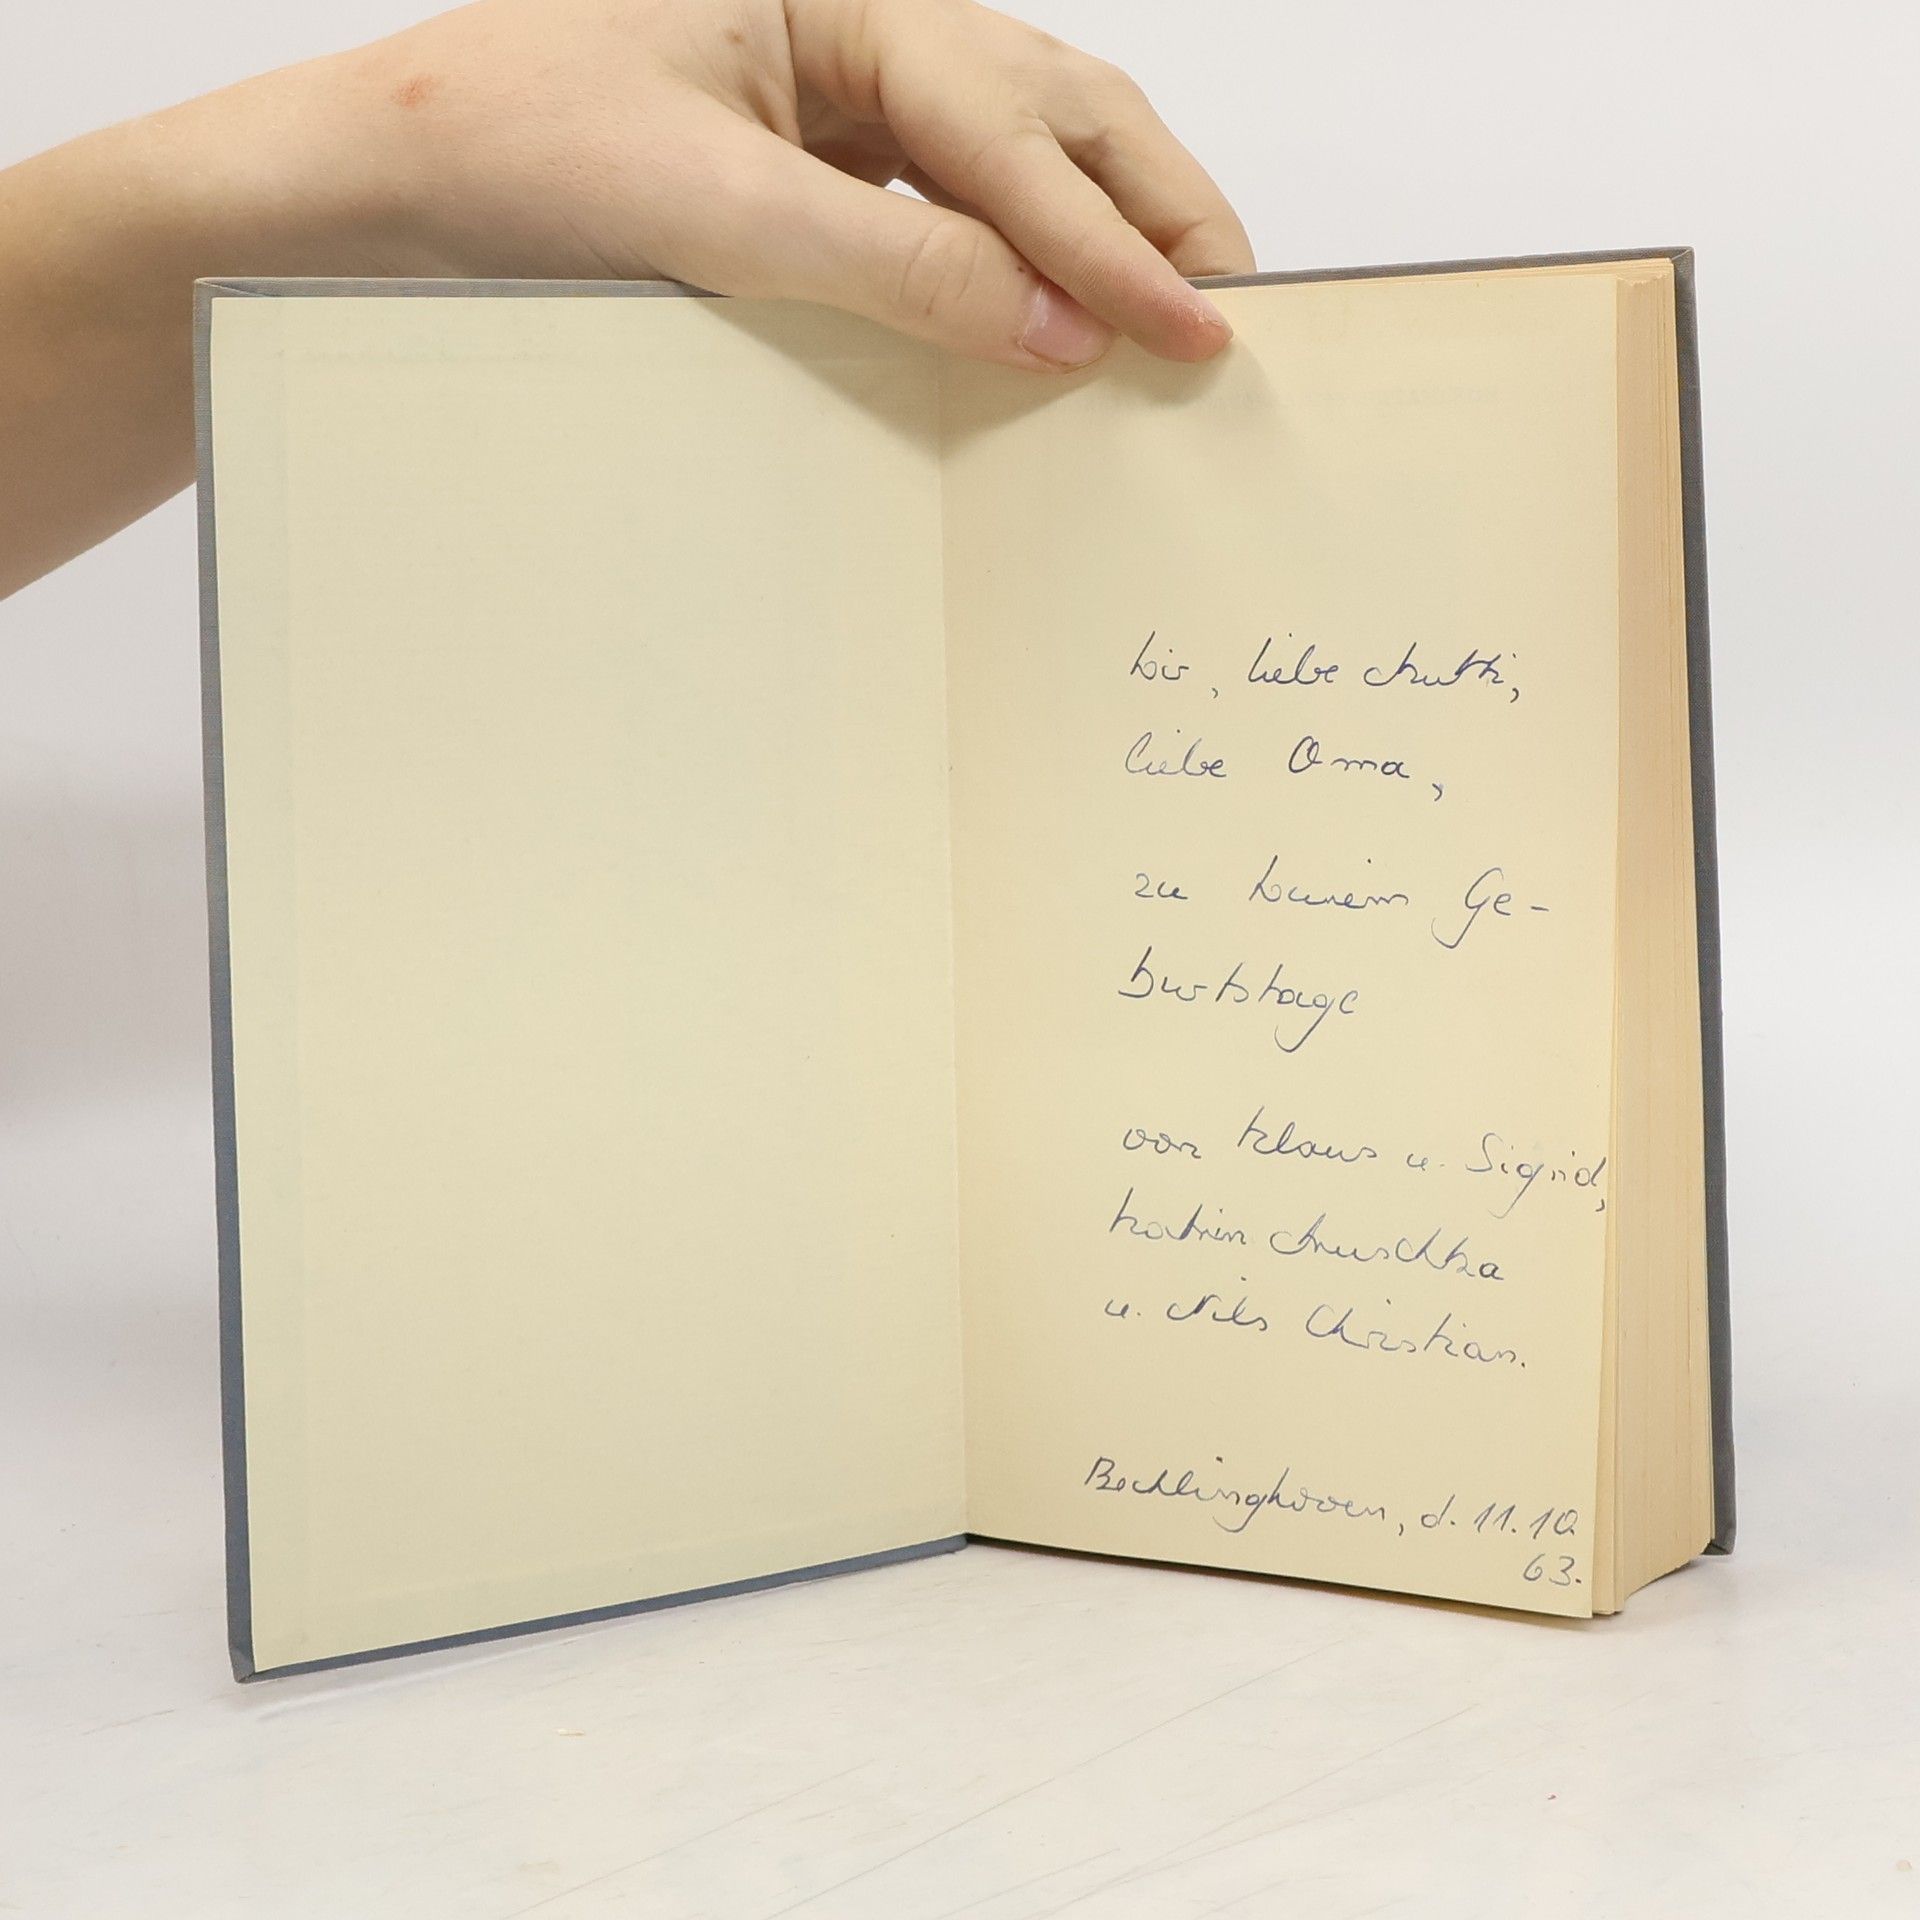 Dir, liebe Mutti,
liebe Oma,
zu Deinem Ge-
burtstage
von Klaus u. Sigrid,
Katrin Anuschka
u. Nils Christian.
Bechlinghoven, d. 11.10.
63.